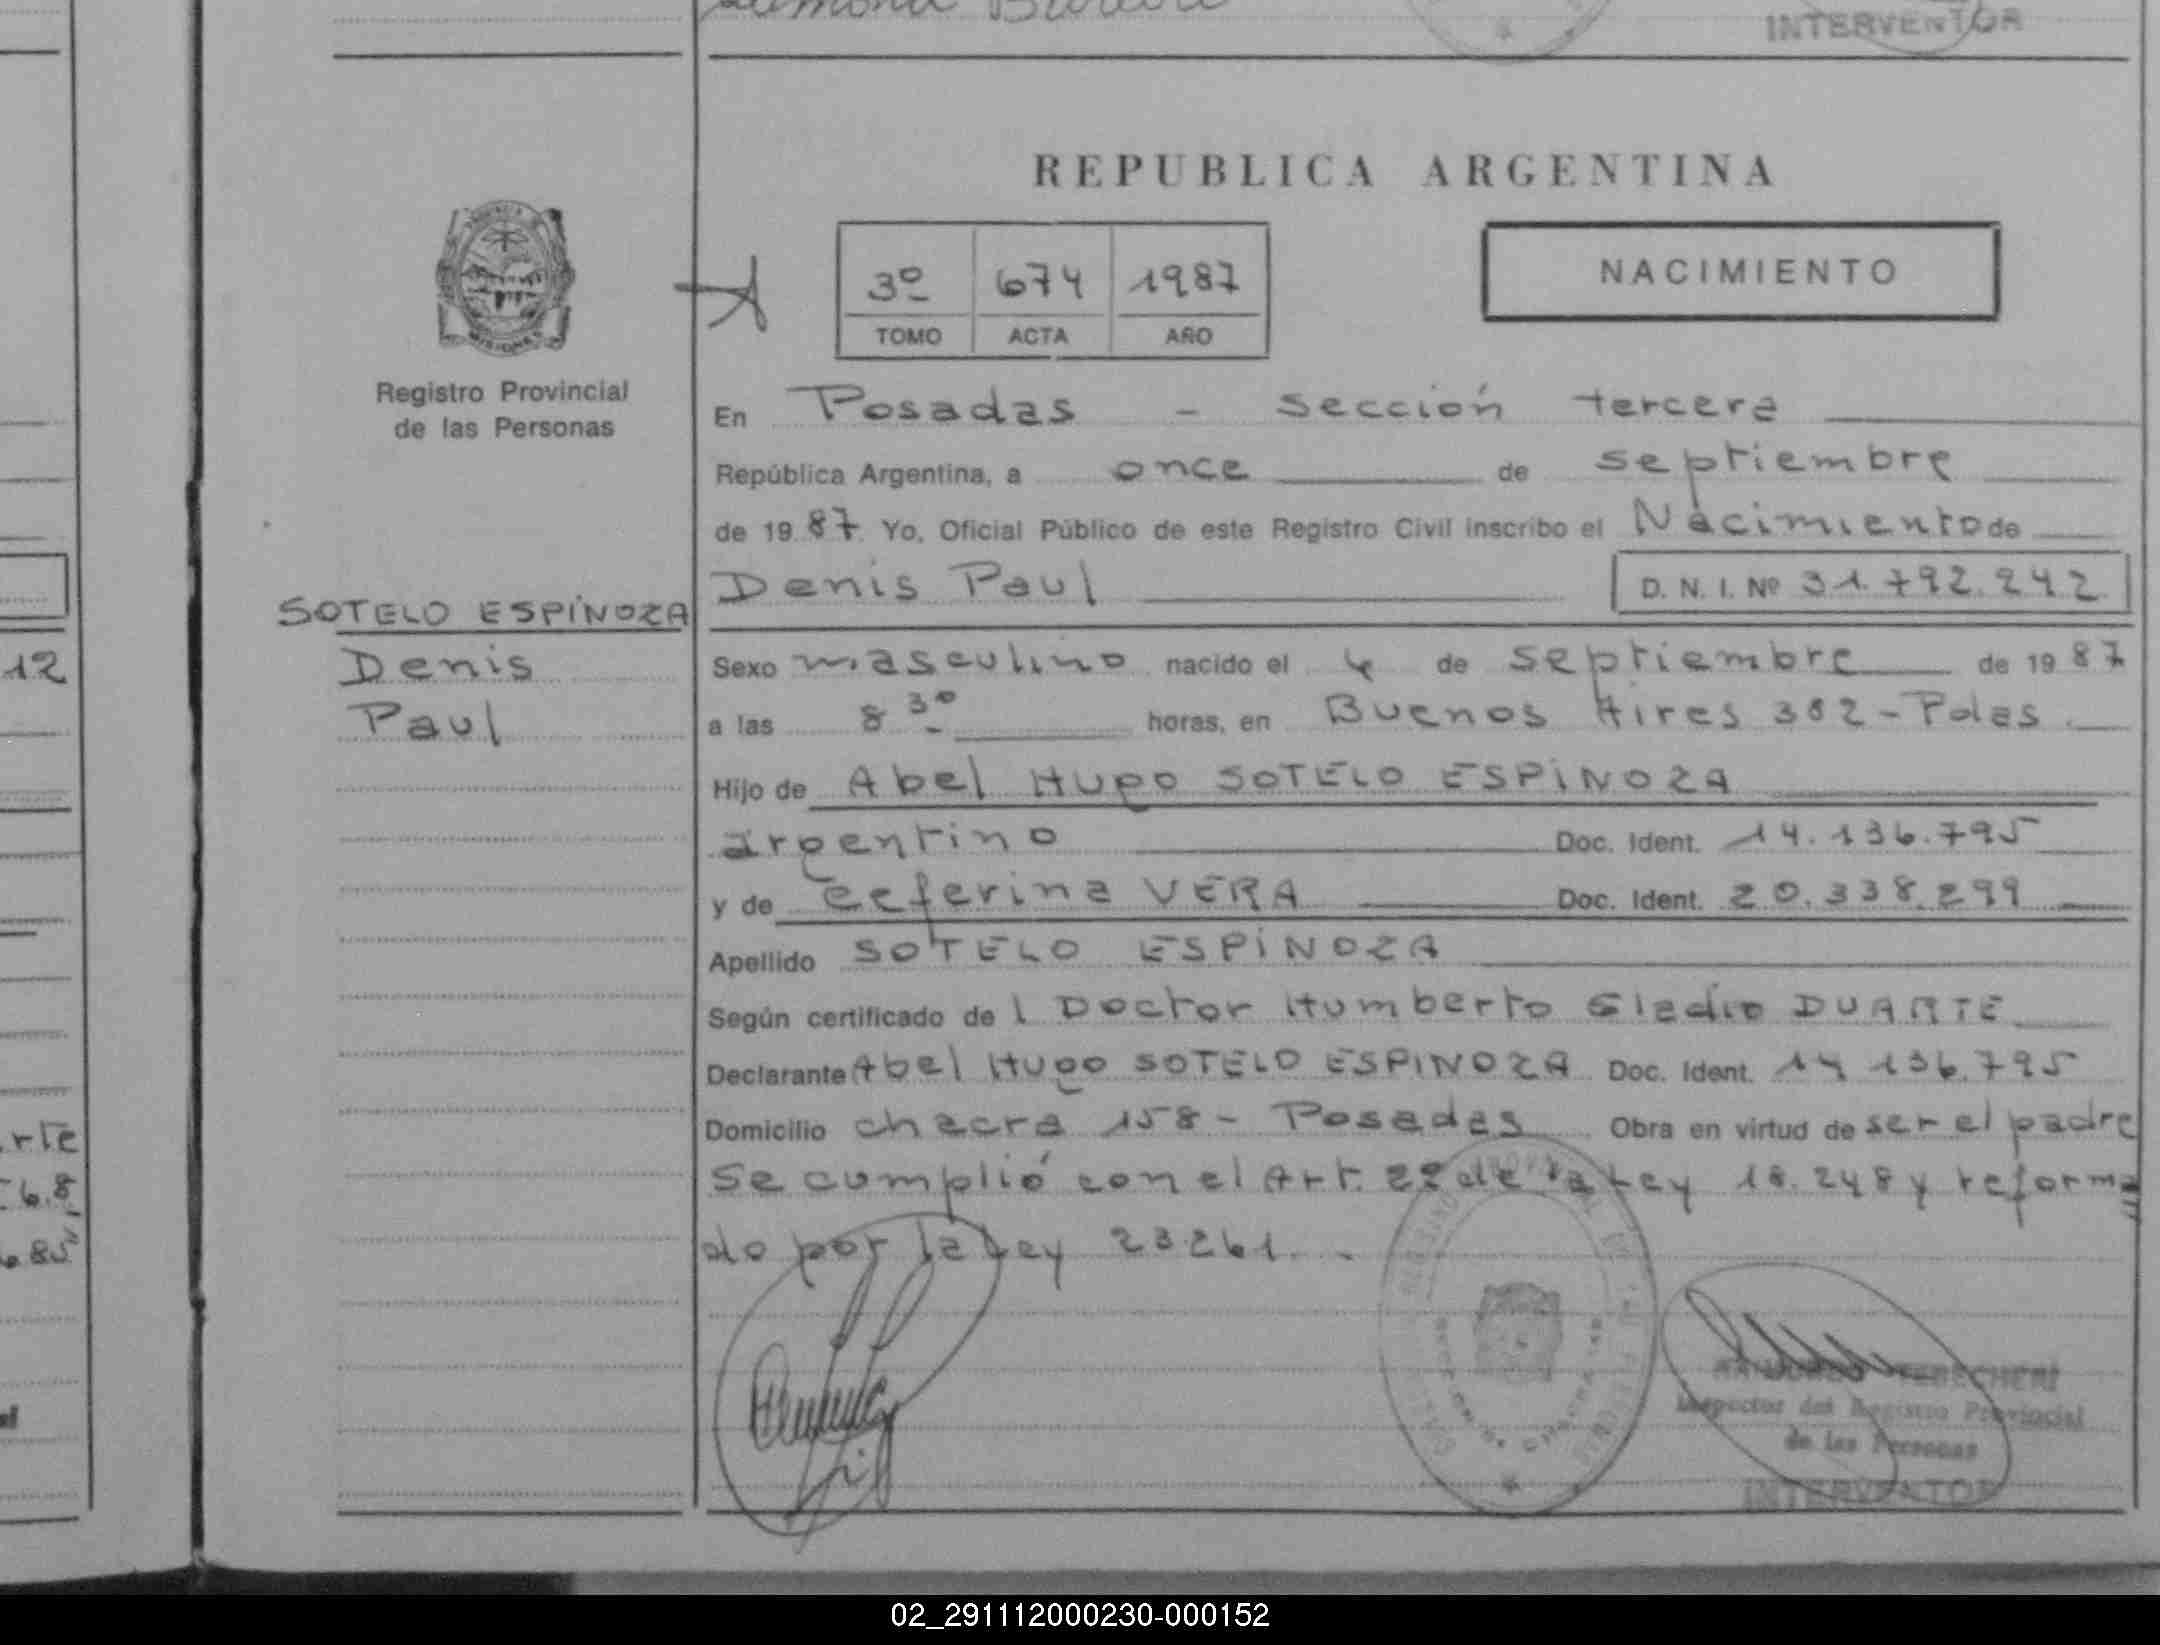 INTERVENTOR
REPUBLICA ARGENTINA
3º 674 1987
TOMO ACTA AÑO
NACIMIENTO
MISIONES
Registro Provincial
de las Personas
En Posadas - sección tercera
República Argentina, a once de septiembre
de 1987. Yo, Oficial Público de este Registro Civil inscribo el Nacimiento de
Denis Paul D. N. I. Nº 31.792.242
SOTELO ESPINOZA
Denis
Paul
Sexo masculino nacido el 4 de septiembre de 1987
a las 8 30 horas, en Buenos Aires 382 - Pdas.
Hijo de Abel Hugo SOTELO ESPINOZA
argentino Doc. Ident. 14.136.795
y de Ceferina VERA Doc. Ident. 20.338.299
Apellido SOTELO ESPINOZA
Según certificado de l Doctor Humberto Eladio DUARTE
Declarante Abel Hugo SOTELO ESPINOZA Doc. Ident. 14 136.795
Domicilio chacra 158 - Posadas Obra en virtud de ser el padre
Se cumplió con el Art. 22 de la Ley 18.248 y reforma
do por la Ley 23261.
12
rte
6.8
85
Inspector del Registro Provincial
de las Personas
INTERVENTOR
02_291112000230-000152